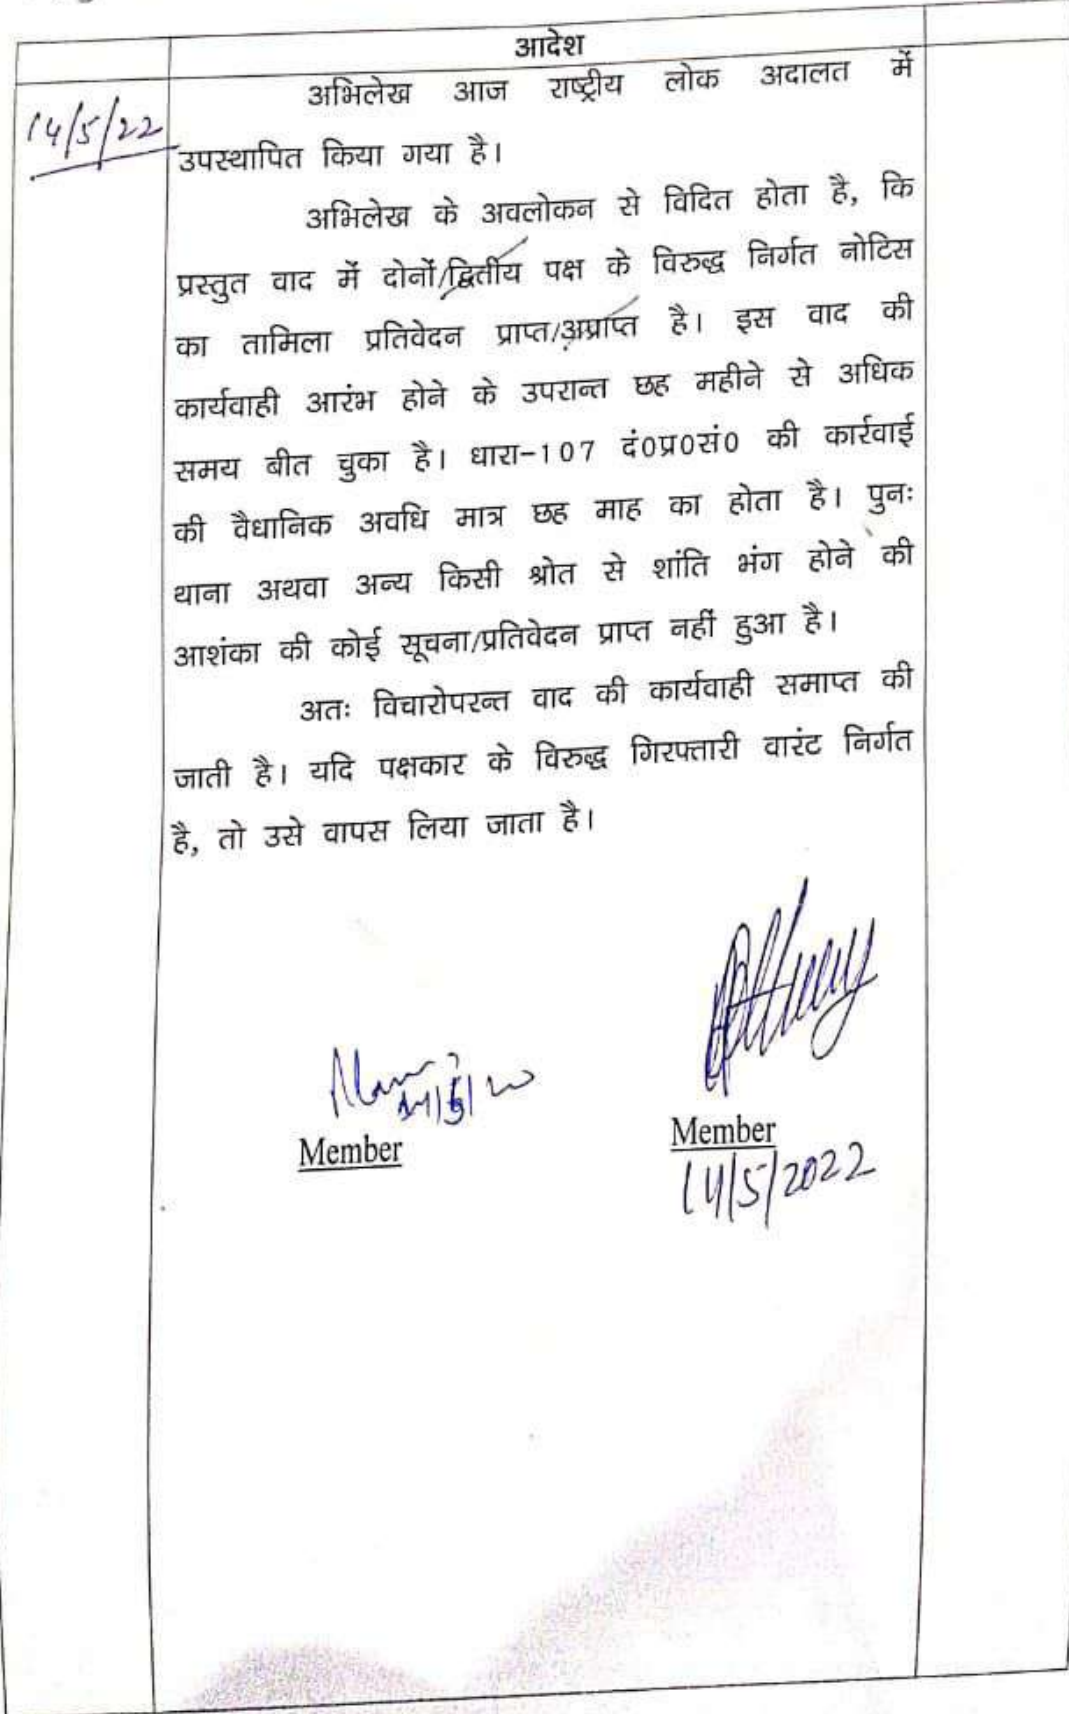 आदेश
14/5/22
अभिलेख आज राष्ट्रीय लोक अदालत में
उपस्थापित किया गया है।
अभिलेख के अवलोकन से विदित होता है, कि
प्रस्तुत वाद में दोनों/द्वितीय पक्ष के विरुद्ध निर्गत नोटिस
का तामिला प्रतिवेदन प्राप्त/अप्राप्त है। इस वाद की
कार्यवाही आरंभ होने के उपरान्त छह महीने से अधिक
समय बीत चुका है। धारा-107 दं0प्र0सं0 की कार्रवाई
की वैधानिक अवधि मात्र छह माह का होता है। पुनः
थाना अथवा अन्य किसी श्रोत से शांति भंग होने की
आशंका की कोई सूचना/प्रतिवेदन प्राप्त नहीं हुआ है।
अतः विचारोपरन्त वाद की कार्यवाही समाप्त की
जाती है। यदि पक्षकार के विरुद्ध गिरफ्तारी वारंट निर्गत
है, तो उसे वापस लिया जाता है।
Member
Member
14/5/2022